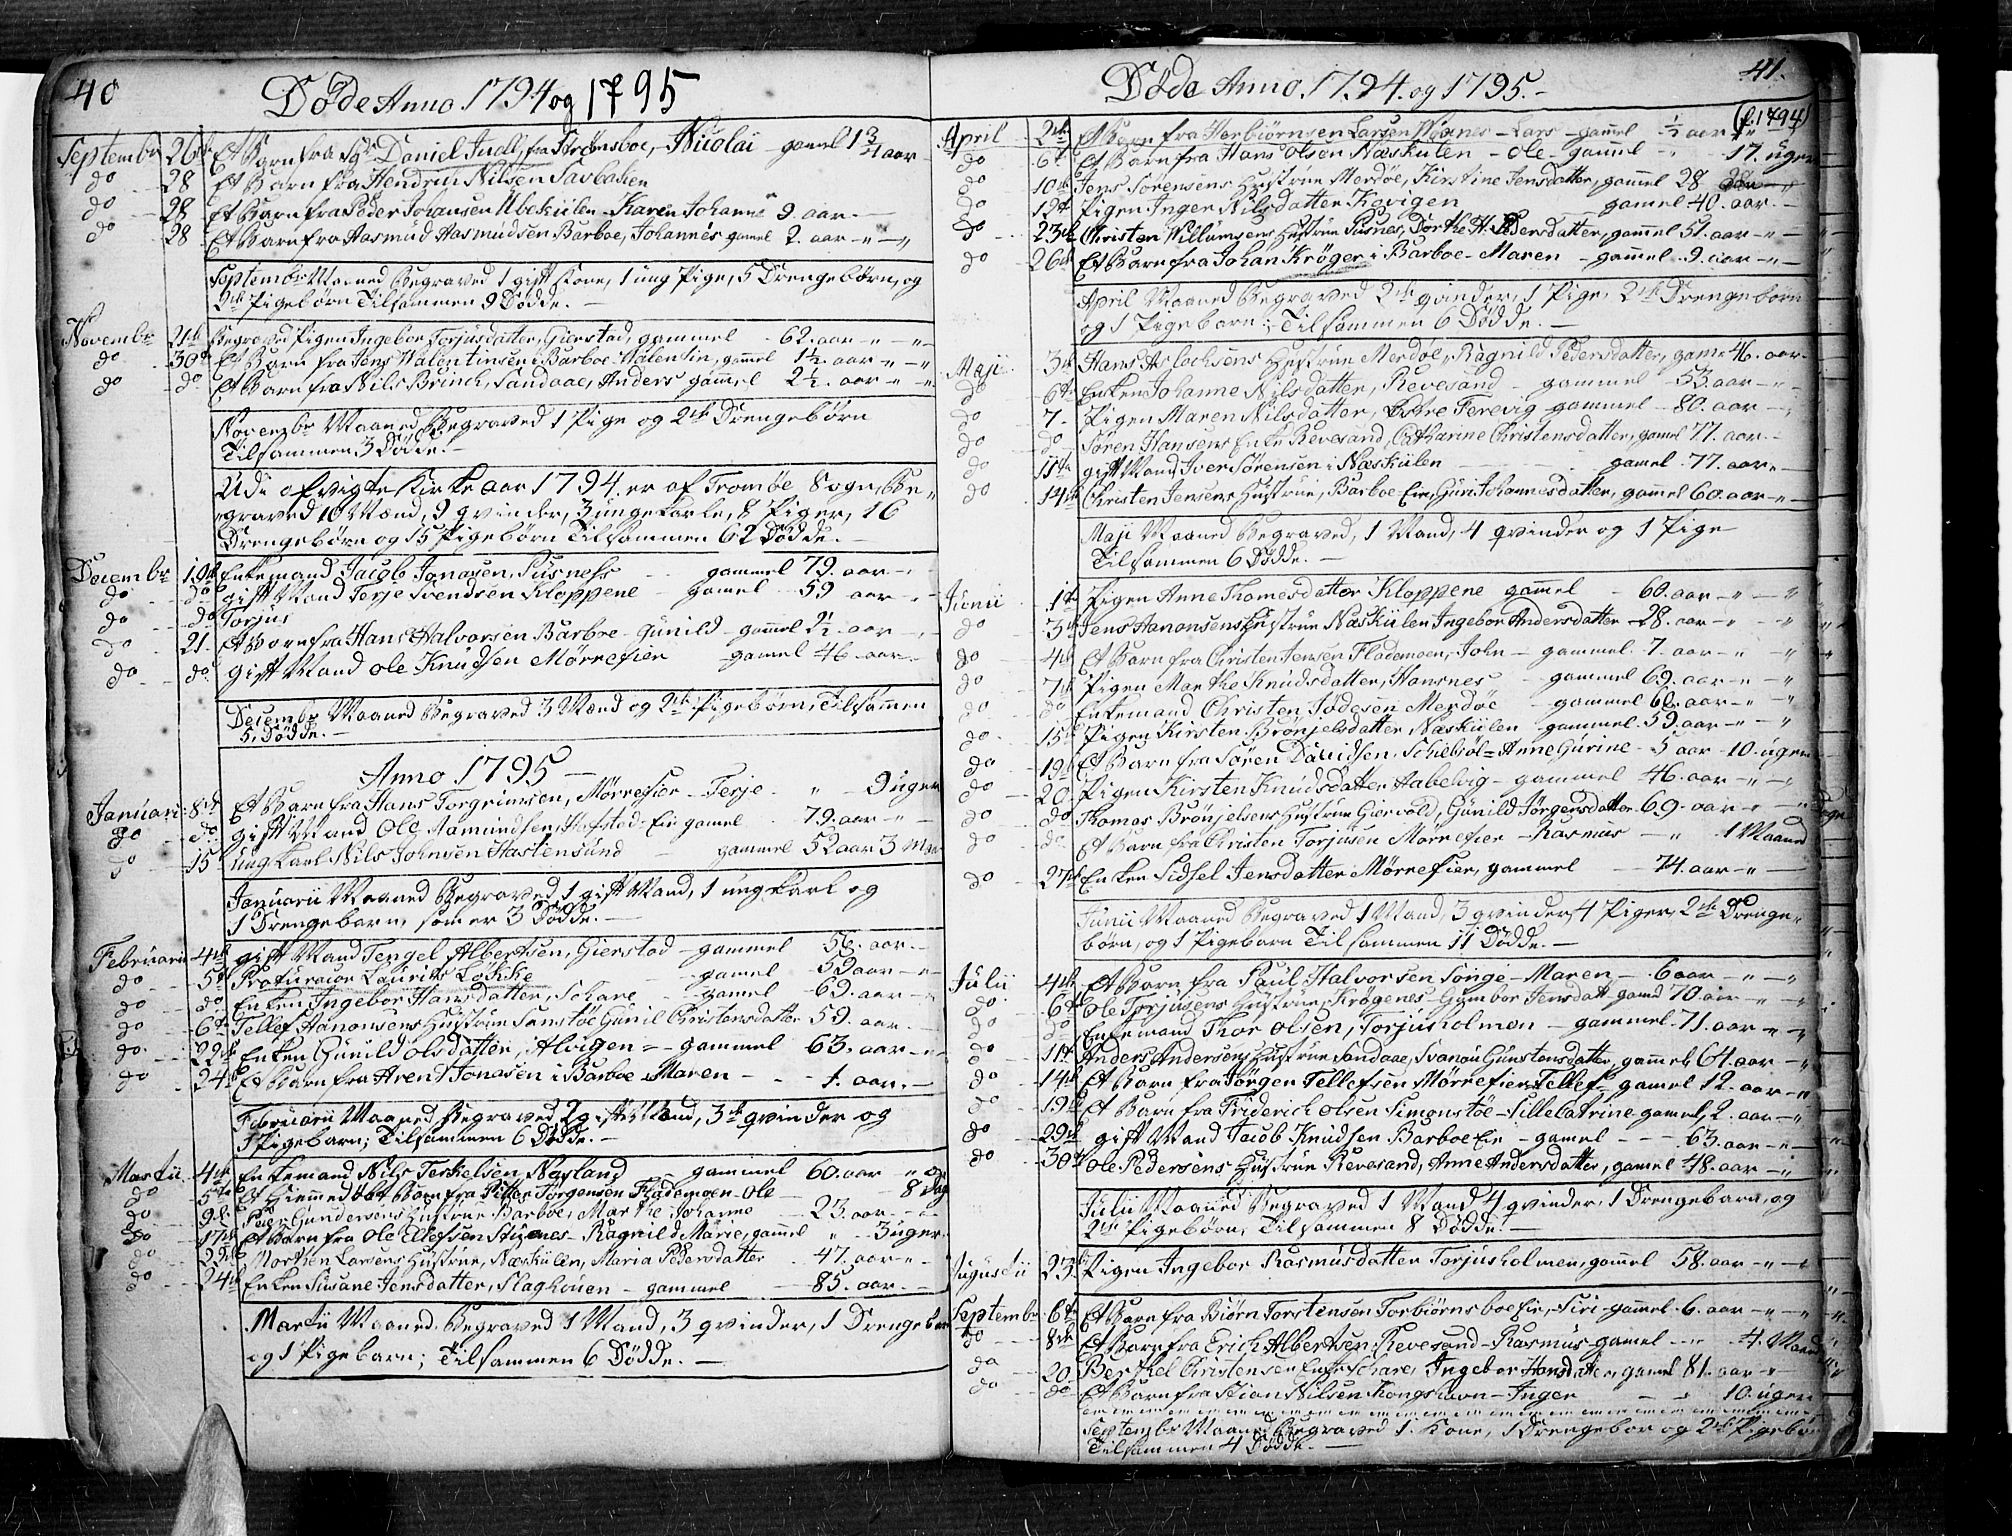 40
Døde Anno 1794 og 1795
Septembr 26de Et Barn fra Sgr Daniel Juell, fra Strømsboe, Nicolai gamel 1 3/4 aar
do 28 Et Barn fra Hendrich Nilsen
do 28 Et Barn fra Peder Johansen Ubekiilen Karen Johanne 9. aar
do 28 Et Barn fra Aasmud Aasmudsen Barboe, Johannes gamel 2. aar
Septembr Maaned Begraved 1 gift Kone, 1 ung Pige, 5 Drengebörn, og
2de Pigebörn Tilsammen 9 Dödde.
Novembr 21de Begraved Pigen Ingebor Torjusdatter, Gierstad, gammel 62. aar
do 30te Et Barn fra Jens Walentinsen i Barboe Valentin, gamel 1 1/2. aar
do do Et Barn fra Nils Brinck, Sandaae, Anders gammel 2 1/2. aar
Novembr Maaned Begraved 1 Pige og 2de Drengebörn
Tilsammen 3 Dödde.
Udi afvigte Kirke aar 1794 er af Tromöe Sogn, Be-
graved 10 Mænd, 9 qvinder, 3 unge Karle, 8 Piger, 16
Drengebörn og 15 Pigebörn Tilsammen 62 Dödde.
Decembr 19de Enkemand Jacob Jonasen, Pusness gammel 79. aar
do do gift Mand Terje Svendsen Kloppene gamel 59 aar
do do Torjus
do 21. Et Barn fra Hans Halvorsen Barboe Gunild gammel 2 1/2. aar
do do gift Mand Ole Knudsen Mörrefier gamel 46. aar
Decembr Maaned Begraved 3 Mænd og 2de Pigebörn, Tilsammen
5. Dödde.
Anno 1795
Januari 8de Et Barn fra Hans Torgrimsen, Mörrefier Terje 9 uger
do do gift Mand Ole Aamundsen, Hofsted Eie gamel 79. aar
do 15 ung Karl Nils Johnsen Hastensund gammel 52 aar 3
Januarii Maaned Begraved, 1 gift Mand, 1 ung Karl og
1 Drengebarn, som er 3 Dödde.
Februarii 4de gift Mand Tengel Albertsen, Gierstad gammel 56. aar
do 5te Procurator Laurits Løkke gamel 59 aar
do do Enken Ingebor Hansdatter, Schare gamel 69. aar
do 6te Tellef Aanonsens Hustrue Sanstöe Gunil Christensdatter 59. aar
do 22de Enken Gunild Olsdatter, Alvigen gammel 63. aar
do 24de Et Barn fra Arent Jonasen i Barboe Maren 1. aar
Februarii Maaned Begraved 2 gifte Mænd, 3de qvinder og
1 Pigebarn; Tilsammen 6 Dödde.
Martii 4de Enkemand Nils Terkelsen, Nasland gammel 60. aar
do 5te Et Hiemmedöbt Barn fra Pitter Jörgensen Flademoen Ole 8 Dag
do 9de Peder Gundersens Hustrue Barboe, Marthe Johanne 23. aar
do 17de Et Barn fra Ole Ellefsen Stuenes Ragnild Marie, gammel 3 uger
do 22de Morthen Larsens Hustrue, Næskiilen, Maria Pedersdatter 47. aar
do 24de Enken Susane Jensdatter, Slaghouen gammel 85. aar
Martii Maaned Begraved 1 Mand, 3 qvinder, 1 Drengebar
og 1 Pigebarn; Tilsammen 6 Dödde.
41.
Döde Anno. 1794. og 1795.
(f. 1794)
April 2de Et Barn fra Herbiörnsen Larsen Woxnes Lars gammel 1/2 aar
do 6te Et Barn fra Hans Olsen Næskiilen Ole gammel 17. uger
do 10de Jens Sörensens Hustrue Merdöe, Kirstine Jensdatter, gammel 28
do 12te Pigen Inger Nilsdatter Kovigen gamel 40. aar
do 23de Christen Willumsens Hustrue Pusnes, Dorthe H. Pedersdatter, gammel 51. aar
do 26de Et Barn fra Johan Kröger i Barboe Maren gammel 9. aar
April Maaned Begraved 2de qvinder, 1 Pige, 2de Drengebörn
og 1 Pigebarn; Tilsammen 6 Dödde.
Maji 3de Hans Aslachsens Hustrue Merdöe, Ragnild Pedersdatter, gamel 46. aar
do 6te Enken Johanne Nilsdatter, Revesand gammel 53. aar
do 7. Pigen Maren Nilsdatter, Østre Ferevig gammel 80. aar
do do Sören Hansens Enke Revesand, Catharine Christensdatter, gamel 77. aar
do 11te gift Mand Iver Sörensen i Næskiilen gamel 77. aar
do 14de Christen Jensens Hustrue, Barboe Eie, Guri Johannesdatter, gammel 60. aar
Maji Maaned Begraved, 1 Mand, 4 qvinder og 1 Pige
Tilsammen 6 Dödde.
Junii 1te Pigen Anne Thomesdatter Kloppene gammel 60. aar
do 3de Jens Aanonsens Hustrue Næskiilen Ingebor Andersdatter 28. aar
do 4de Et Barn fra Christen Jensen Flademoen, John gammel 7. aar
do 7de Pigen Marthe Knudsdatter, Hansnes gammel 69. aar
do do Enkemand Christen Jödesen Merdöe gammel 66. aar
do 15de Pigen Kirsten Brönjelsdatter Næskiilen gammel 59. aar
do 19de Et Barn fra Sören Davidsen, Schiebsöl Anne Gurine 5 aar 10. uger
do 20. Pigen Kirsten Knudsdatter Aabelvig gammel 46. aar
do do Thomas Brönjelsens Hustrue Giervold, Gunild Jörgensdatter 69. aar
do do Et Barn fra Christen Torjusen Mörrefier Rasmus 1 Maaned
do 27de Enken Sidsel Jensdatter Mörrefier, gammel 74. aar
Junii Maaned Begraved 1 Mand, 3 qvinder, 4 Piger, 2de Drenge-
börn, og 1 Pigebarn Tilsammen 11 Dödde.
Julii 4de Et Barn fra Paul Halvorsen Songe Maren 6 aar
do 6te Ole Torjusens Hustrue, Krögenes Gumbor Jensdatt gamel 70. aar
do do Enkemand Thor Olsen, Torjusholmen gammel 71. aar
do 11te Anders Andersens Hustrue Sandaae, Svanou Gunstensdatter, gammel 64. aar
do 14de Et Barn fra Jörgen Tellefsen Mörrefier Tellef gamel 12. aar
do 19de Et Barn fra Friderich Olsen Simonstöe Sille Catrine gamel 2. aar
do 29de gift Mand Jacob Knudsen Barboe Eie gamel 63. aar
do 30te Ole Pedersens Hustrue Revesand, Anne Andersdatter, gamel 48. aar
Julii Maaned Begraved 1 Mand 4 qvinder, 1 Drengebarn, og
2de Pigebörn, Tilsammen 8 Dödde.
Augustii 23. Pigen Ingebor Rasmusdatter Torjusholmen, gammel 58. aar
Septembr 6te Et Barn fra Biörn Torstensen Torbiörnsboe Eie, Siri gammel 6. aar
do 8de Et Barn fra Erich Albertsen Revesand Rasmus gamel 4. Maan
do 20. Berthel Christensen Enke Schare, Ingebor Hansdatter, gamel 81. aar
do do Et Barn fra Stian Nilsen Kongshavn Inger 10. uger
Septembr Maaned Begraved 1. Kone, 1 Drengebar og 2de Pigebör
Tilsammen 4 Dödde.